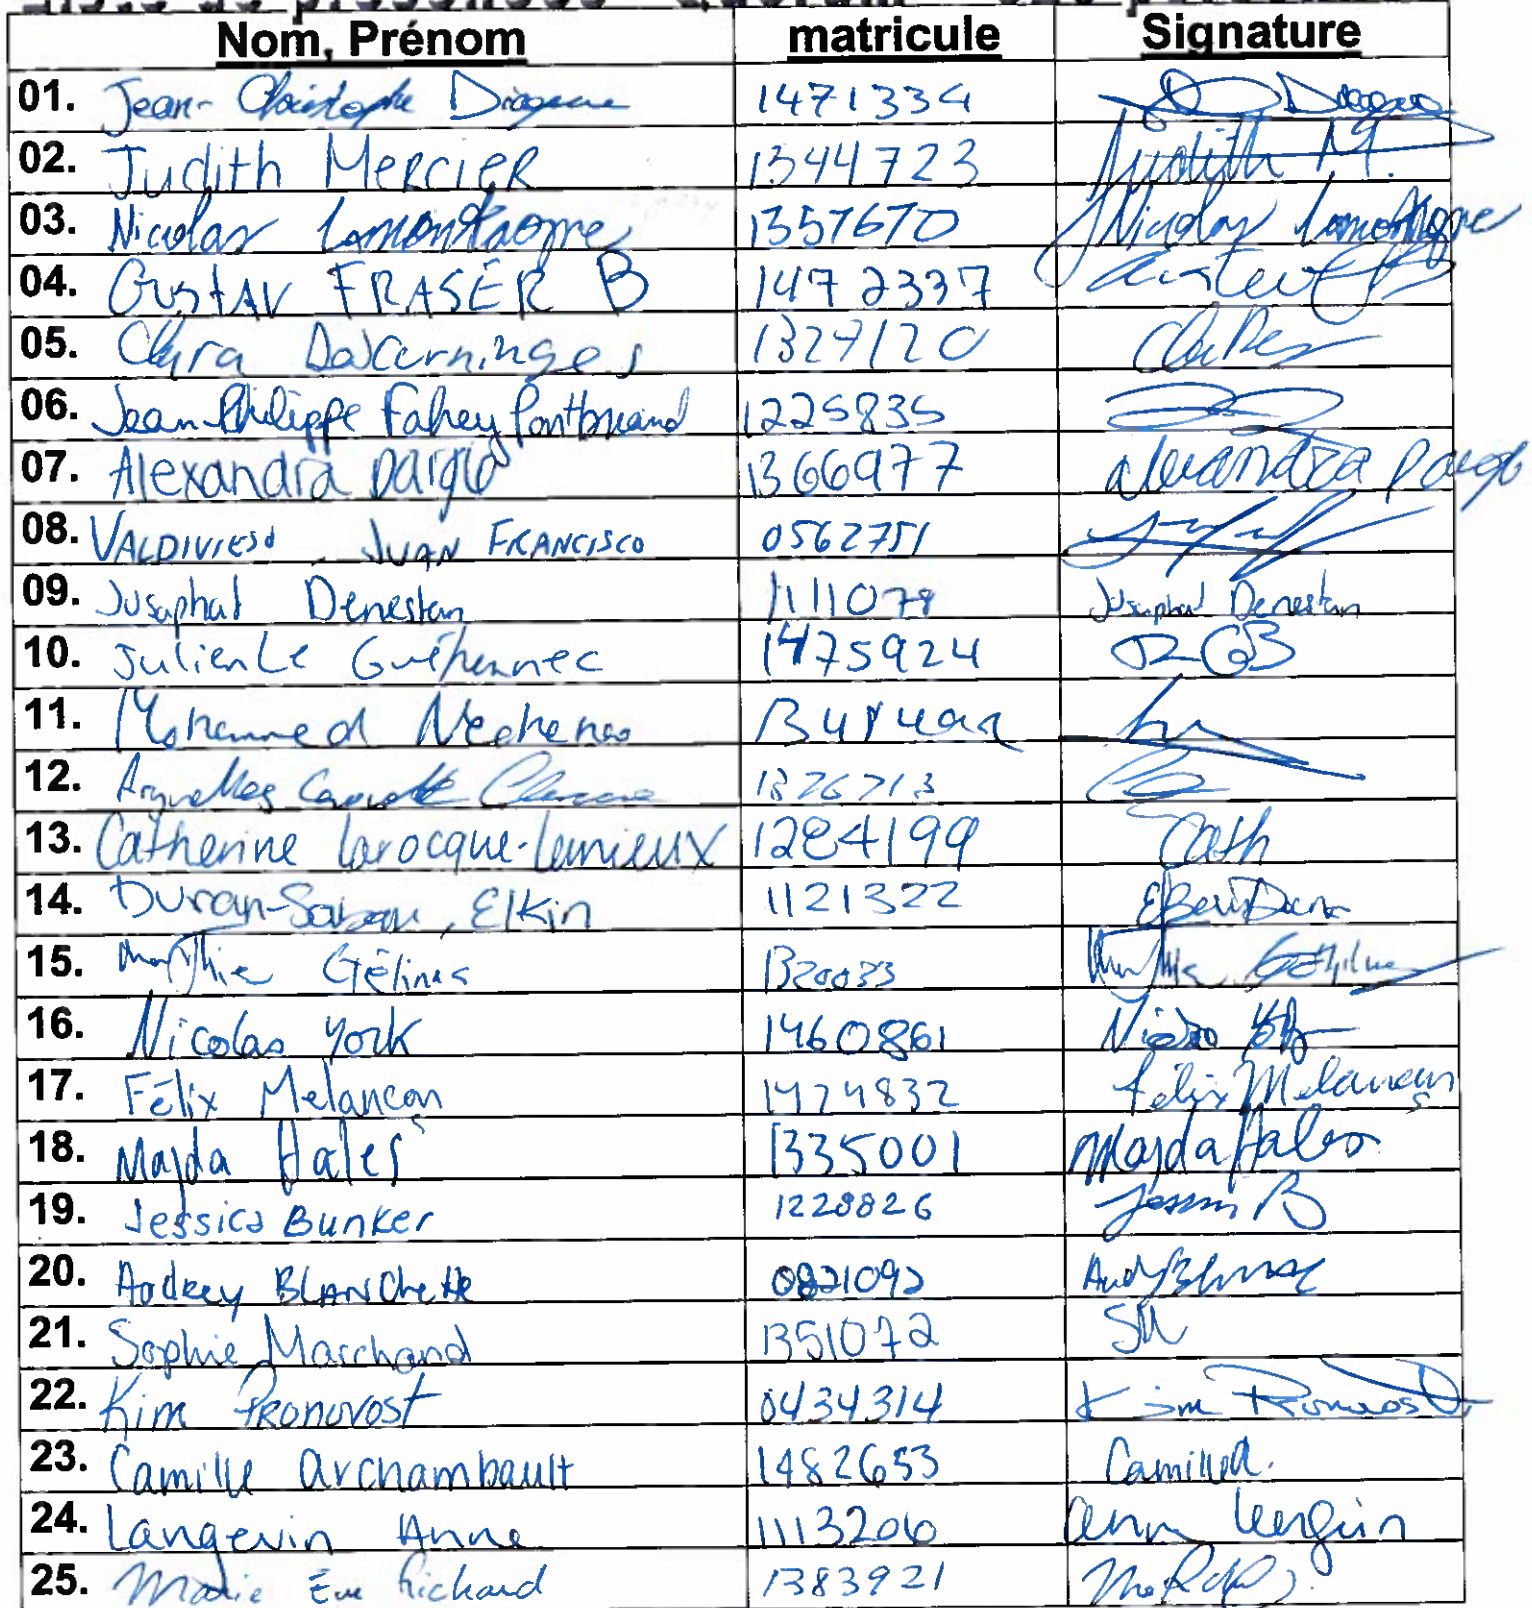 Nom, Prénom matricule Signature
01. Jean-Christophe 1471334
02. Judith MERCIER 1344723 Judith M.
03. Nicolas Lamontagne 1357670 Nicolas Lamontagne
04. GUSTAV FRASER B 1472337
05. Clara 1327120
06. Jean-Philippe Fahey Pontbriand 1225835
07. Alexandra Daigle 1366977 Alexandra Daigle
08. VALDIVIESO, JUAN FRANCISCO 0562751
09. Jusaphat Denestan 1111078 Jusaphat Denestan
10. Julien Le Guéhennec 1475924
11. Mohammed
12. 1326713
13. Catherine Larocque-Lemieux 1284199 Cath
14. Duran- , Elkin 1121322
15. Gélinas 1320033
16. Nicolas York 1460861
17. Félix Melançon 1474832 Félix Melançon
18. Majda Hales 1335001 Majda Hales
19. Jessica Bunker 1228826
20. Audrey BLANCHette 0821092
21. Sophie Marchand 1351072 SM
22. Kim PRONOVOST 0434314 Kim Pronovost
23. Camille Archambault 1482653 Camille A.
24. Langevin Anne 1113206
25. Marie Eve Richard 1383921